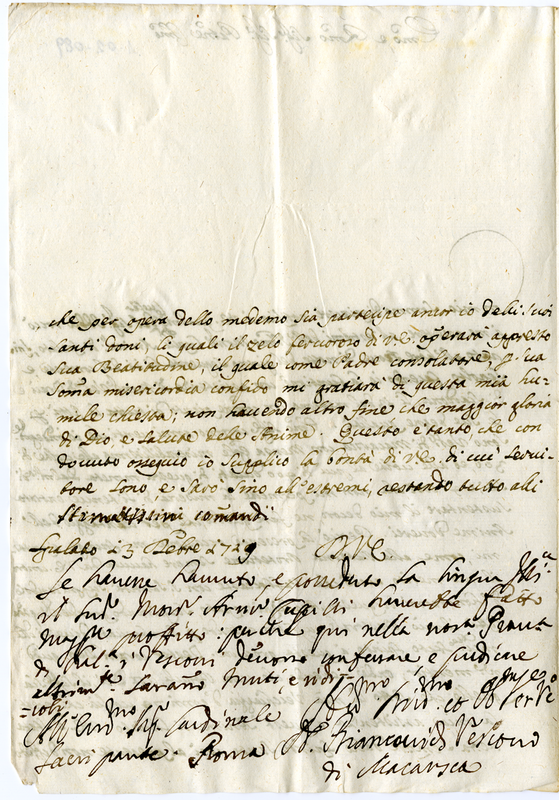 che per opera dello medemo sia partecipe ancor io delli suoi
santi doni, li quali il zelo fervoroso di V.E. operarà appresso
sua Beatitudine, il quale come Padre consolatore, p sua
somã misericordia confido mi gratiarà di questa mia hu-
mile chiesta; non havendo altro fine che maggior gloria
di Dio, e salute delle Anime. Questo è tanto, che con
dovuto ossequio io supplico la bontà di V.E. di cui servi-
tore sono, e sarò sino all'estremi, restando tutto alli
stimatissimi comandi
Spalato 23 1729 D.V.E.
Se havesse havuto, e posseduto la lingua
Mons. havrebbe fatto
maggr profitto: perche qui nella nostra
di i Vescovi devono confessare, e predicare
altrimte sarano muti, e ridi-
=coli.
Cardinale
Sacripante. Roma Biancovich Vescovo
di Macarsca